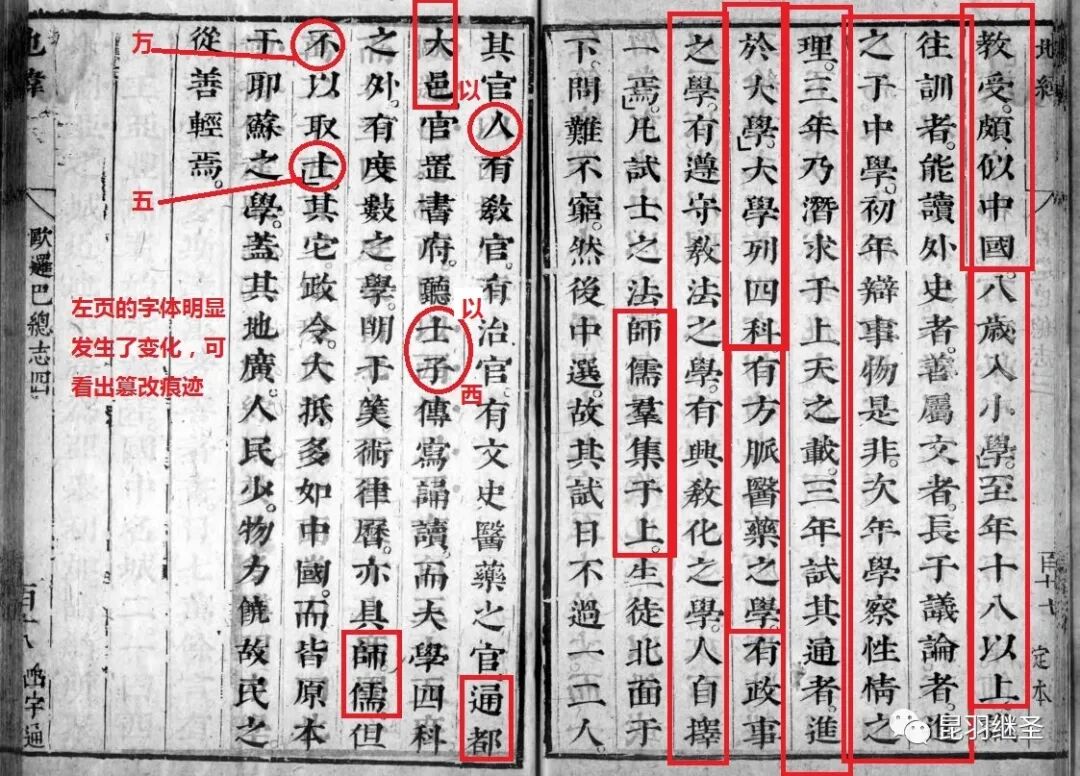 地緯
百十七
定本
教受。頗似中國。八歲入小學。至年十八以上。
往訓者。能讀外史者。善屬文者。長于議論者。進
之于中學。初年辯事物是非。次年學察性情之
理。三年乃潛求于上天之載。三年試其通者。進
於大學。大學列四科。有方脈醫藥之學。有政事
之學。有遵守教法之學。有興教化之學。人自擇
一焉。凡試士之法。師儒羣集于上。生徒北面于
下。問難不窮。然後中選。故其試日不過一二人
其官人有教官。有治官。有文史醫藥之官。通都
大邑官置書府。聽士子傳寫誦讀。而大學四科
之外。有度數之學。明于筭術律曆。亦具師儒。但
不以取士。其它政令。大抵多如中國。而皆原本
于耶蘇之學。蓋其地廣。人民少。物力饒。故民之
從善輕焉。
歐邏巴總志四
百十八
字通
以
以
西
万
五
左页的字体明显
发生了变化，可
看出篡改痕迹
昆羽继圣